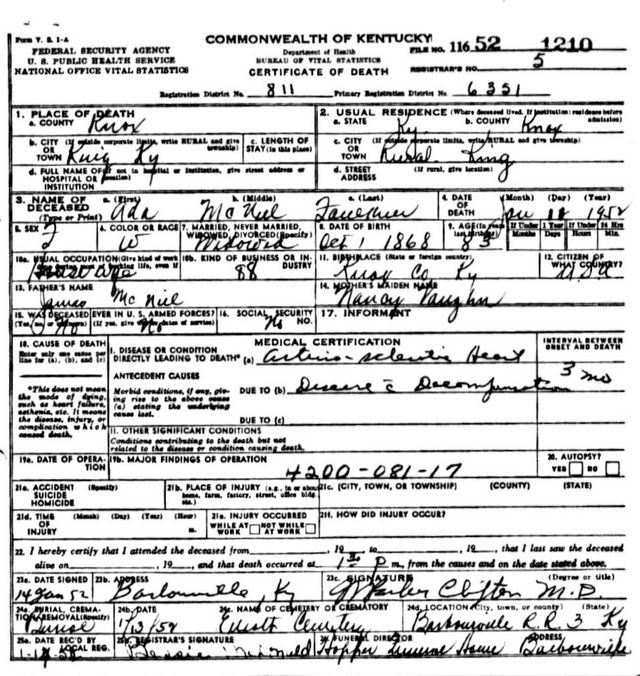 Form V. S. 1-A
COMMONWEALTH OF KENTUCKY
FEDERAL SECURITY AGENCY
U. S. PUBLIC HEALTH SERVICE
NATIONAL OFFICE VITAL STATISTICS
Department of Health
BUREAU OF VITAL STATISTICS
CERTIFICATE OF DEATH
FILE NO. 116 52 1210
REGISTRAR'S NO. 5
Registration District No. 811 Primary Registration District No. 6351
1. PLACE OF DEATH
a. COUNTY Knox
2. USUAL RESIDENCE (Where deceased lived. If institution: residence before admission)
a. STATE Ky. b. COUNTY Knox
b. CITY (If outside corporate limits, write RURAL and give township) OR TOWN King Ky
c. LENGTH OF STAY (in this place)
c. CITY (If outside corporate limits, write RURAL and give township) OR TOWN Rural King
d. FULL NAME OF (If not in hospital or institution, give street address or location) HOSPITAL OR INSTITUTION
d. STREET ADDRESS (If rural, give location)
3. NAME OF DECEASED (Type or Print)
a. (First) Ada b. (Middle) McNiel c. (Last) Faulkner
4. DATE OF DEATH (Month) (Day) (Year) Jan 1952
5. SEX F
6. COLOR OR RACE W
7. MARRIED, NEVER MARRIED, WIDOWED, DIVORCED (Specify) Widowed
8. DATE OF BIRTH Oct 1 1868
9. AGE (In years last birthday) 83 If Under 1 Year Months Days If Under 24 Hrs Hours Min.
10a. USUAL OCCUPATION (Give kind of work done during most of working life, even if retired)
10b. KIND OF BUSINESS OR INDUSTRY 88
11. BIRTHPLACE (State or foreign country) Knox Co, Ky
12. CITIZEN OF WHAT COUNTRY? USA
13. FATHER'S NAME James McNiel
14. MOTHER'S MAIDEN NAME Nancy Vaughn
15. WAS DECEASED EVER IN U.S. ARMED FORCES? (Yes, no, or unknown) (If yes, give war or dates of service) No
16. SOCIAL SECURITY NO. No
17. INFORMANT
18. CAUSE OF DEATH
Enter only one cause per line for (a), (b), and (c)
MEDICAL CERTIFICATION
INTERVAL BETWEEN ONSET AND DEATH
I. DISEASE OR CONDITION DIRECTLY LEADING TO DEATH* (a) Arterio-sclerotic Heart
*This does not mean the mode of dying, such as heart failure, asthenia, etc. It means the disease, injury, or complication which caused death.
ANTECEDENT CAUSES
Morbid conditions, if any, giving rise to the above cause (a) stating the underlying cause last.
DUE TO (b) Disease c̄ Decompensation 3 mo
DUE TO (c)
II. OTHER SIGNIFICANT CONDITIONS
Conditions contributing to the death but not related to the disease or condition causing death.
19a. DATE OF OPERATION
19b. MAJOR FINDINGS OF OPERATION
4200-081-17
20. AUTOPSY? YES NO
21a. ACCIDENT SUICIDE HOMICIDE (Specify)
21b. PLACE OF INJURY (e.g., in or about home, farm, factory, street, office bldg., etc.)
21c. (CITY, TOWN, OR TOWNSHIP) (COUNTY) (STATE)
21d. TIME OF INJURY (Month) (Day) (Year) (Hour) m.
21e. INJURY OCCURRED WHILE AT WORK NOT WHILE AT WORK
21f. HOW DID INJURY OCCUR?
22. I hereby certify that I attended the deceased from , 19 to , 19 , that I last saw the deceased
alive on , 19 , and that death occurred at 1 30 P m., from the causes and on the date stated above.
23a. DATE SIGNED 14 Jan 52
23b. ADDRESS Barbourville, Ky
23c. SIGNATURE (Degree or title) Clifton M.D.
24a. BURIAL, CREMATION, REMOVAL (Specify) Burial
24b. DATE 1/3/52
24c. NAME OF CEMETERY OR CREMATORY Cemetery
24d. LOCATION (City, town, or county) (State) Barbourville R.R. 3 Ky
25a. DATE REC'D BY LOCAL REG.
25b. REGISTRAR'S SIGNATURE Bessie
26. FUNERAL DIRECTOR ADDRESS Hopper Funeral Home Barbourville